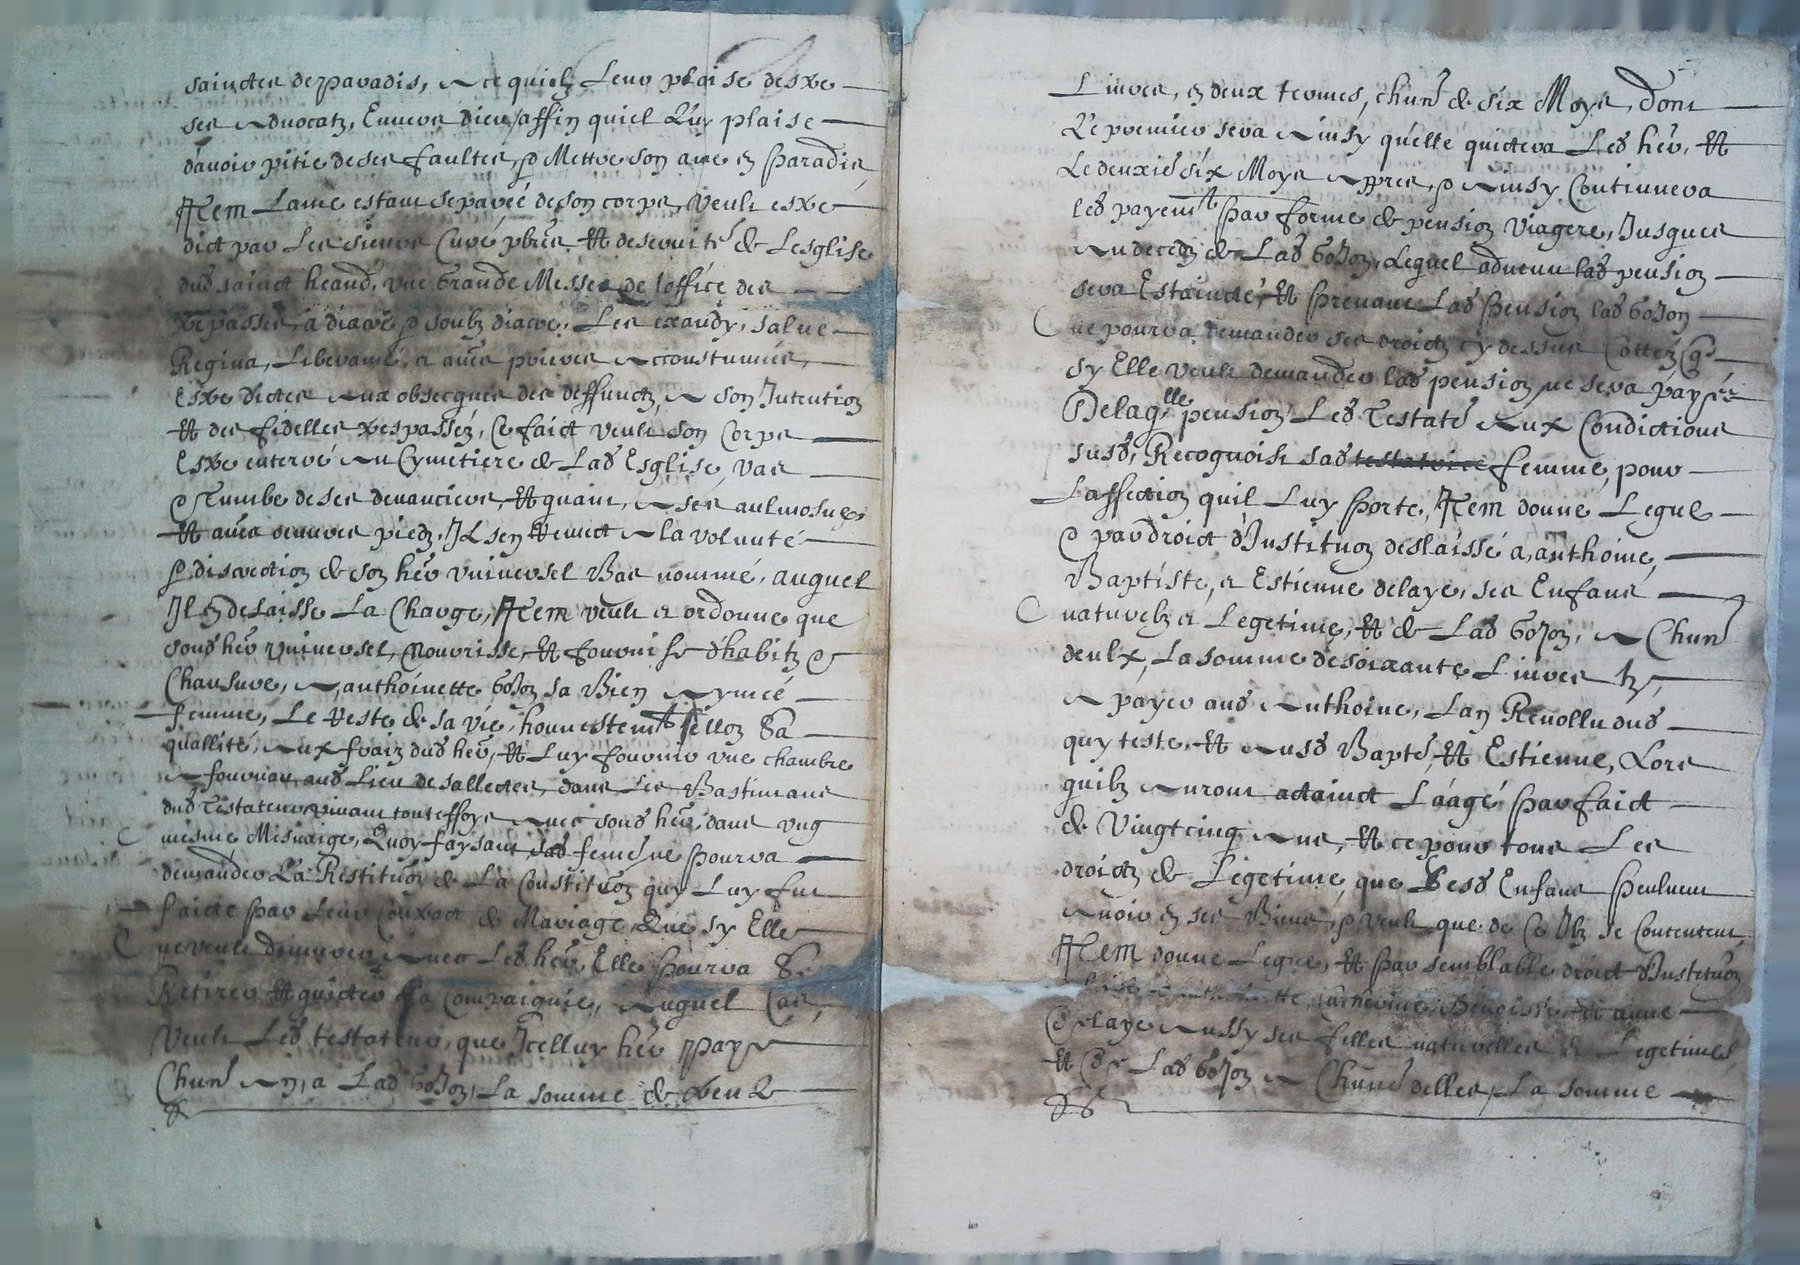 sainctes de paradis, A ce quielz Leur plaise destre
ses Advocatz, Envers dieu, affin quiel Luy plaise
davoir pitie de ses faultes, & Mettre son ame en Paradis
Item Lame estant separée de son corps, Veult estre
dict par Les sieurs Curé pbres et de Lesglise
dud sainct heand, une Grande Messe de Loffice des
trepasses, a diacre & soubz diacre, Les exaudy, salve
Regina, Liberame, et aues prieres Accoustumées,
Estre dictes Aux obsecques des deffunctz, A son Intention
et des fidelles trespassés, Ce faict veult son Corps
Estre enterré Au Cymetiere de Lad Esglise, Vas
& Tumbe de ses devanciers, et quant, A ses aulmosnes
et aues oeuvres piedz, Il sen Remict A la volunté
& discrection de son her universel Bas nommé, auquel
Il en delaisse La Charge, Item veult et ordonne que
sond her universel, Nourrisse, et fournisse dhabitz &
Chausure, A anthoinette Gojon sa Bien Aymée
femme, Le Reste de sa vie, honnestemt sellon Sa
quallité, Aux fraiz dud her, et Luy fournir une chambre
A fournau aud Lieu de sallectes, dans Les Bastimans
dud Testateur vivant touteffoys Avec sond her, dans ung
mesme Mesnaige, Quoy faysant, lad feme ne Pourra
demander La Restituon de La Constituon quy Luy fut
faicte Par Leur Contract de Mariage, Que sy Elle
ne veult demurer Avec Led her, Elle Pourra Se
Retirer et quicter sa Compaignie, Auquel Cas,
Veult Led testateur, que Icelluy her Paye
Chun An, a Lad Gojon, La somme de
Livres, en deux termes, chun de six Moys, dont
Le premier sera Ainsy quelle quictera Led her, et
Le deuxie six Moys Appres, & Ainsy Continuera
led payemt Par forme de pension Viagere, Jusques
Au deces de Lad Gojon, Lequel advenu lad pension
sera Estaincte, et Prenant Lad Pension lad Gojon
ne pourra demander ses droictz cy dessus Cottez
sy Elle veult demander lad pension ne sera payée
Delaqlle pension, Led Testatr Aux Condictions
susd, Recognoist sad testatrice femme, pour
Laffection quil Luy Porte, Item donne Legue
& par droict dInstituon deslaissé a, anthoine,
Baptiste, et Estienne delaye, ses Enfans
naturelz et Legetime, et de Lad Gojon, A Chun
deulx, La somme de soixante Livres tz,
A payer aud Anthoine, Lan Revollu dud
quy teste, et Ausd Bapte et Estienne, Lors
quilz Auront actainct Láagé Parfaict
de Vingtcinq Ans, et ce pour tous Les
droictz de Legetime, que Lesd Enfans Peulvent
Avoir en ses Biens, & veult que de Ce Ilz se Contentent,
Item donne Legue, et Par semblable droict dInstituon
et anne
Delaye Aussy ses filles naturelles & Legetimes
et De Lad Gojon A Chune delles, La somme